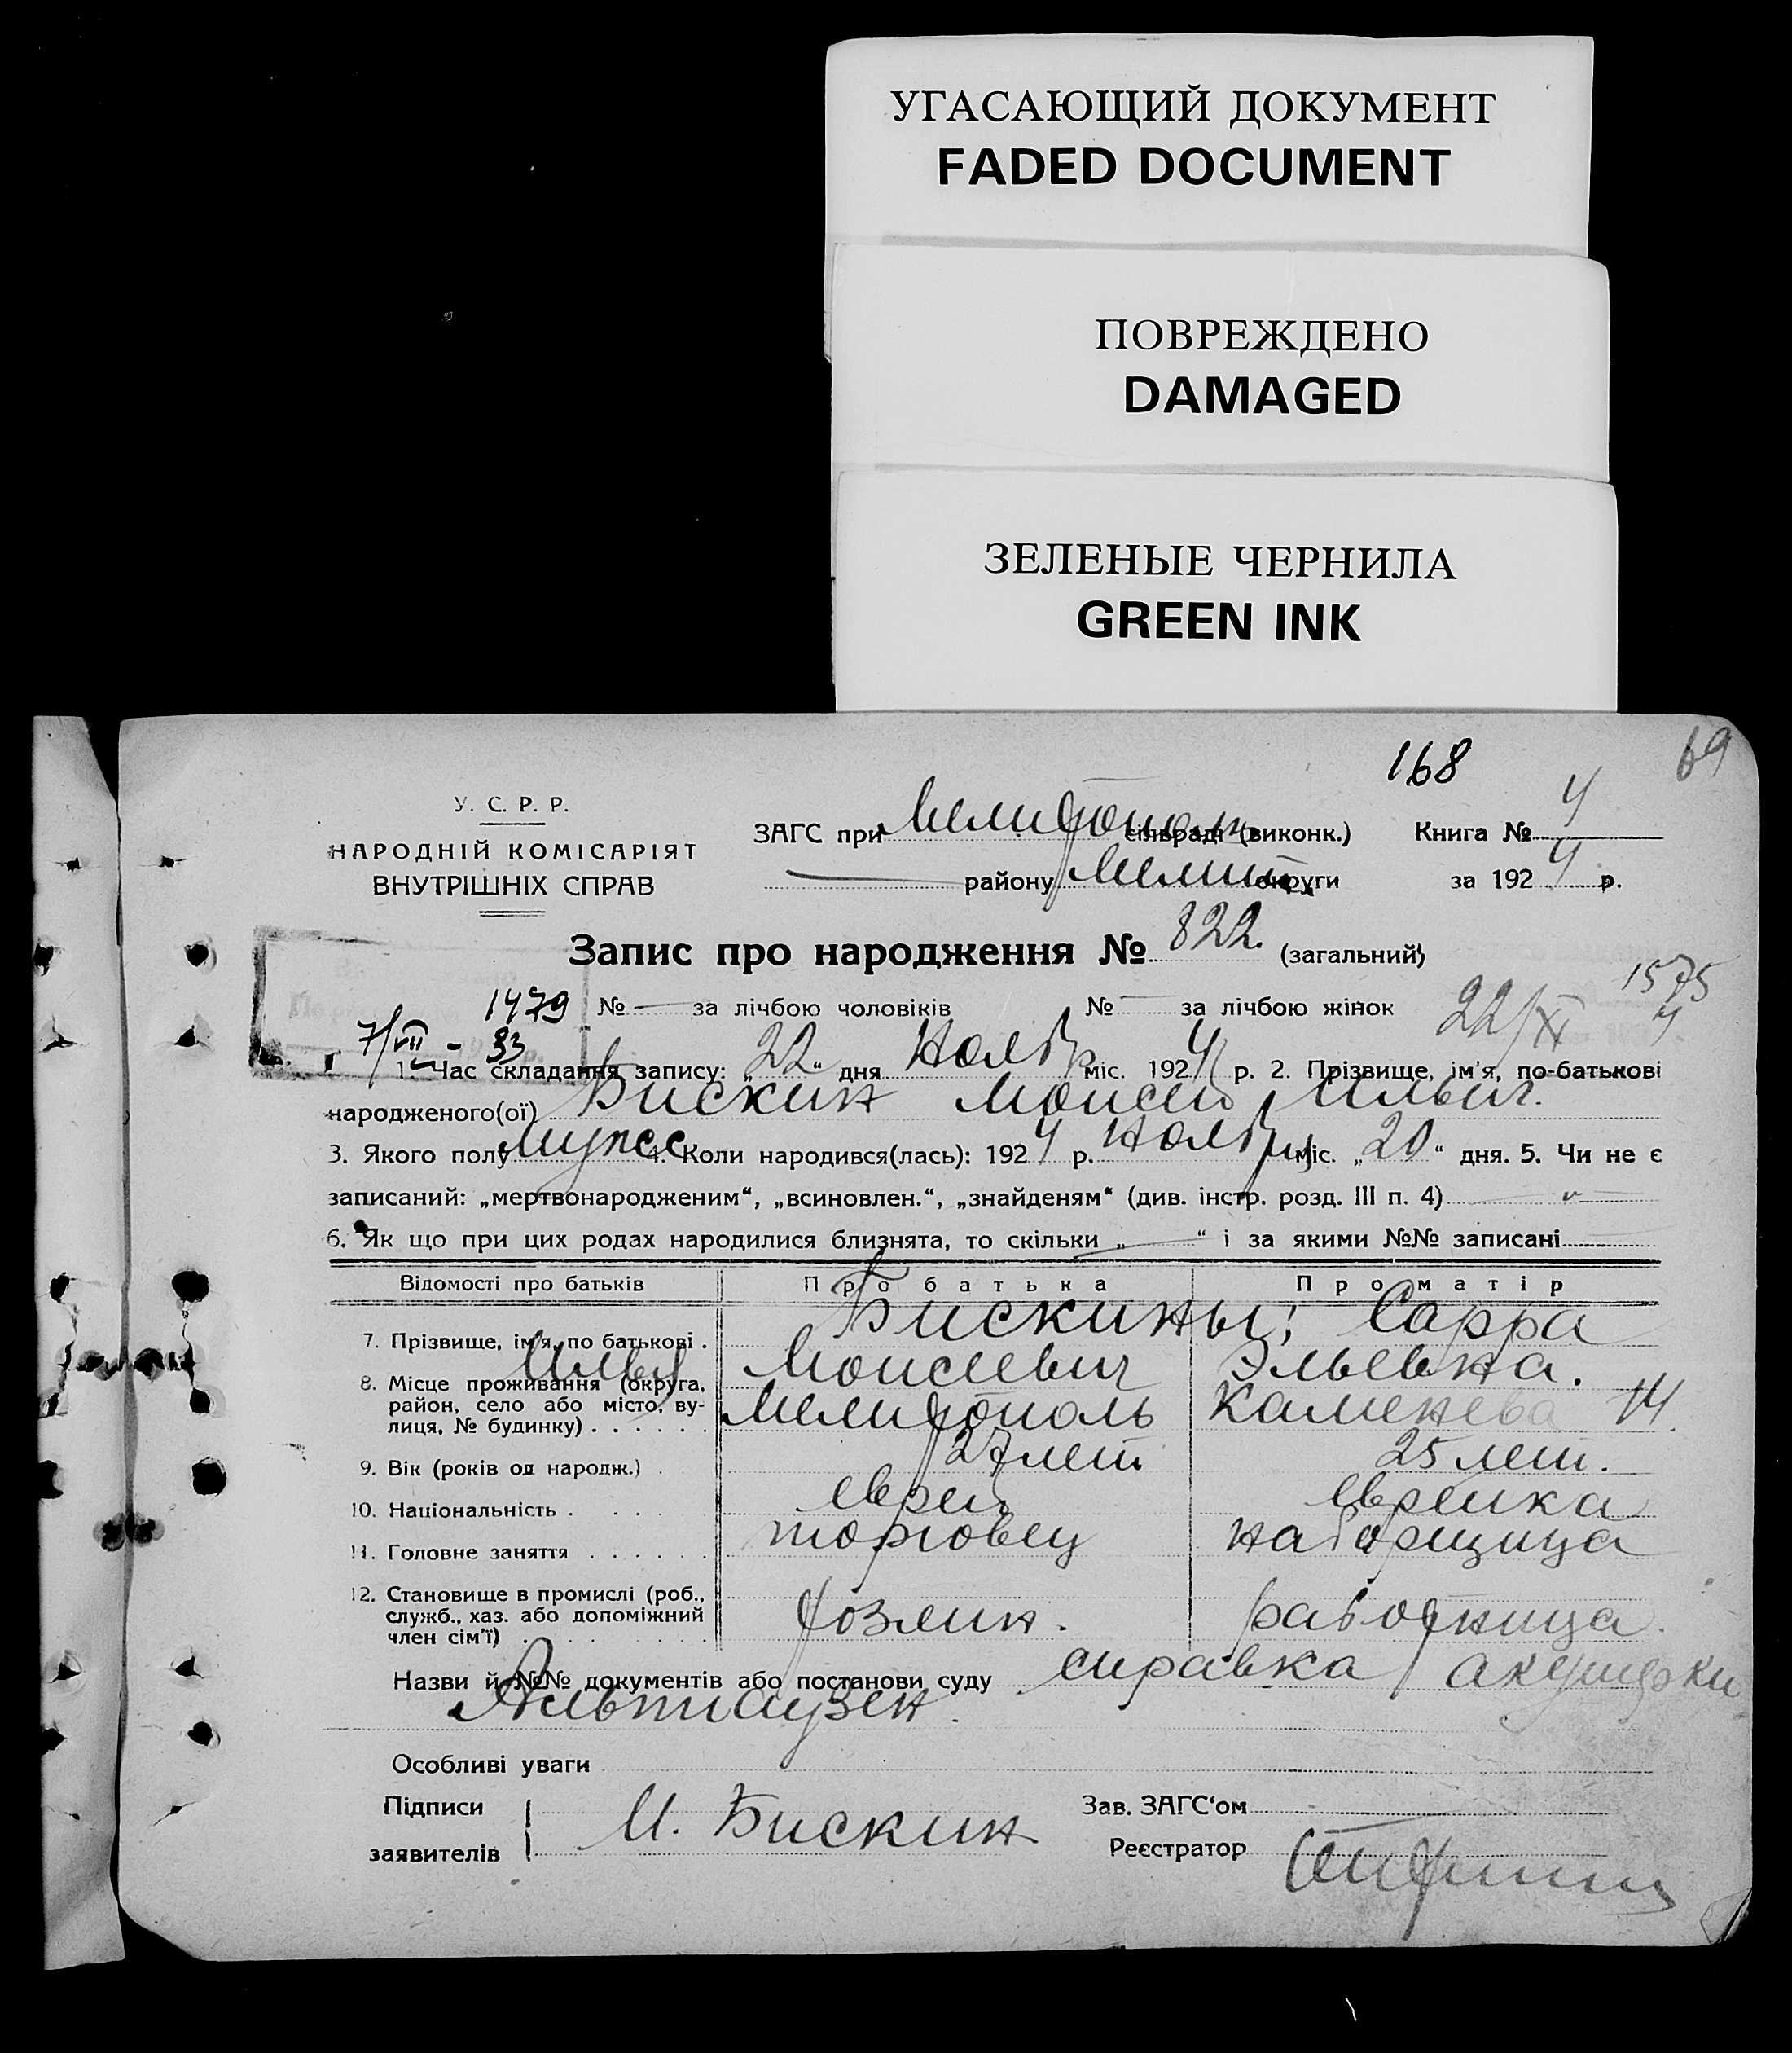 УГАСАЮЩИЙ ДОКУМЕНТ
FADED DOCUMENT
ПОВРЕЖДЕНО
DAMAGED
ЗЕЛЕНЫЕ ЧЕРНИЛА
GREEN INK
168
69
У. С. Р. Р.
НАРОДНІЙ КОМІСАРІЯТ
ВНУТРІШНІХ СПРАВ
ЗАГС при Мелитопол. сільраді (виконк.) Книга № 4
району Мелит. округи за 1924 р.
Запис про народження № 822. (загальний)
1479 № — за лічбою чоловіків № — за лічбою жінок 22/XI 1575
7/VII - 33
1. Час складання запису: „22“ дня Ноябр міс. 1924 р. 2. Прізвище, ім'я, по-батькові
народженого(ої) Бискин Моисей Ильич.
3. Якого полу мужск 4. Коли народився(лась): 1924 р. Ноября міс. „20“ дня. 5. Чи не є
записаний: „мертвонародженим“, „всиновлен.“, „знайденям“ (див. інстр. розд. III п. 4)
6. Як що при цих родах народилися близнята, то скільки „ — “ і за якими №№ записані
Відомості про батьків Про батька Про матір
7. Прізвище, ім'я, по батькові . Бискины; Сарра
Илья Моисеевич Эльевна.
8. Місце проживання (округа, район, село або місто, ву-
лиця, № будинку) . . . . . . Мелитополь Каменева 14.
9. Вік (років од народж.) . 27 лет. 25 лет.
10. Національність . . . . еврей еврейка
11. Головне заняття . . . . . . торговец наборщица
12. Становище в промислі (роб.,
служб., хаз. або допоміжний
член сім'ї) . . . . . . . хозяин. работница.
Назви й №№ документів або постанови суду справка акушерки
Альтгаузен.
Особливі уваги
Підписи
заявителів И. Бискин
Зав. ЗАГС'ом
Реєстратор